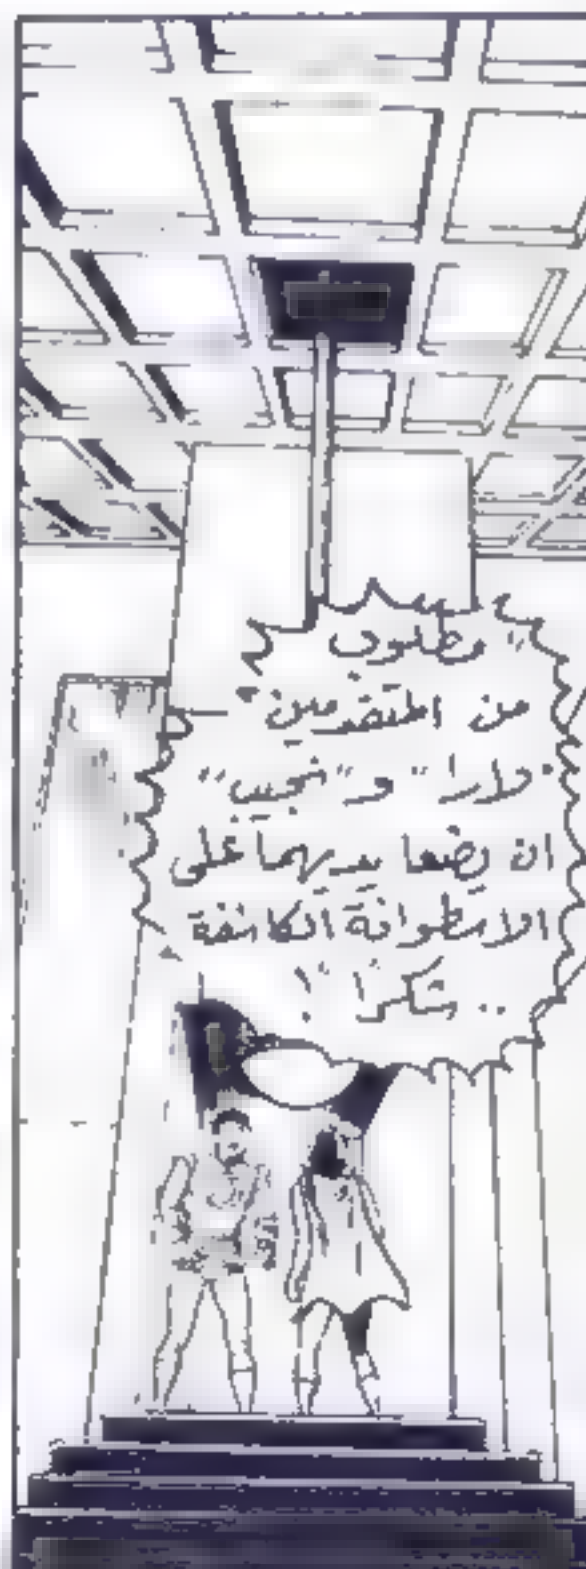 "مطلوب
من المتقدمين
"لارا" و "نجيب"
ان يضعا يديهما على
الاسطوانة الكاشفة
.. شكراً"!